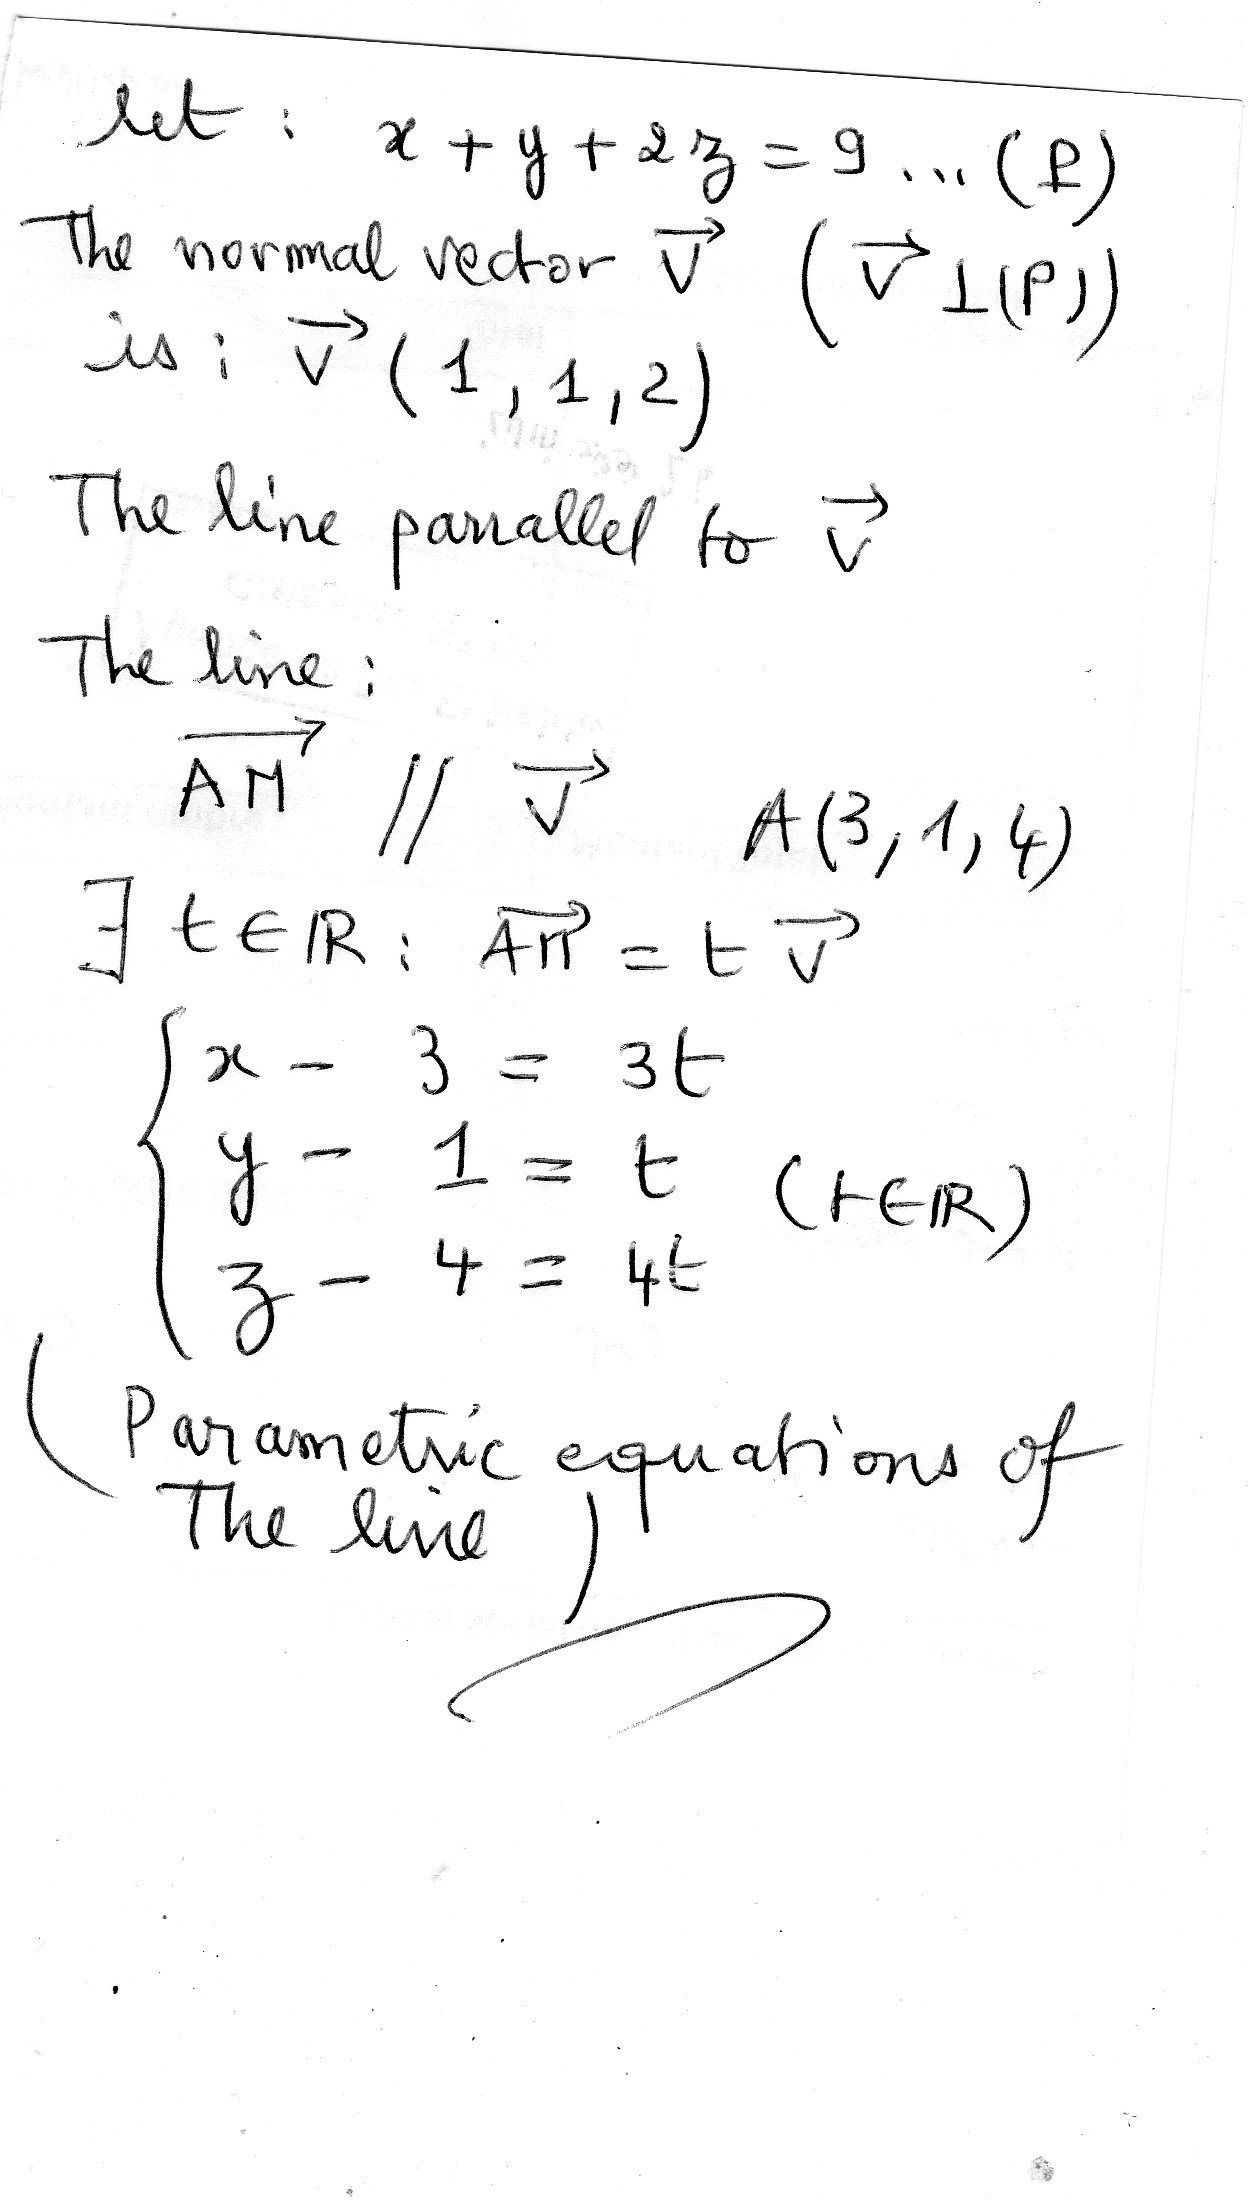 let : x + y + 2z = 9 ... (P)
The normal vector V⃗ (V⃗ ⊥ (P))
is : V⃗ (1, 1, 2)
The line parrallel to V⃗
The line :
AM⃗ // V⃗ A(3, 1, 4)
∃ t ∈ ℝ : AM⃗ = t V⃗
x - 3 = 3t
y - 1 = t (t ∈ ℝ)
z - 4 = 4t
(Parametric equations of
The line)